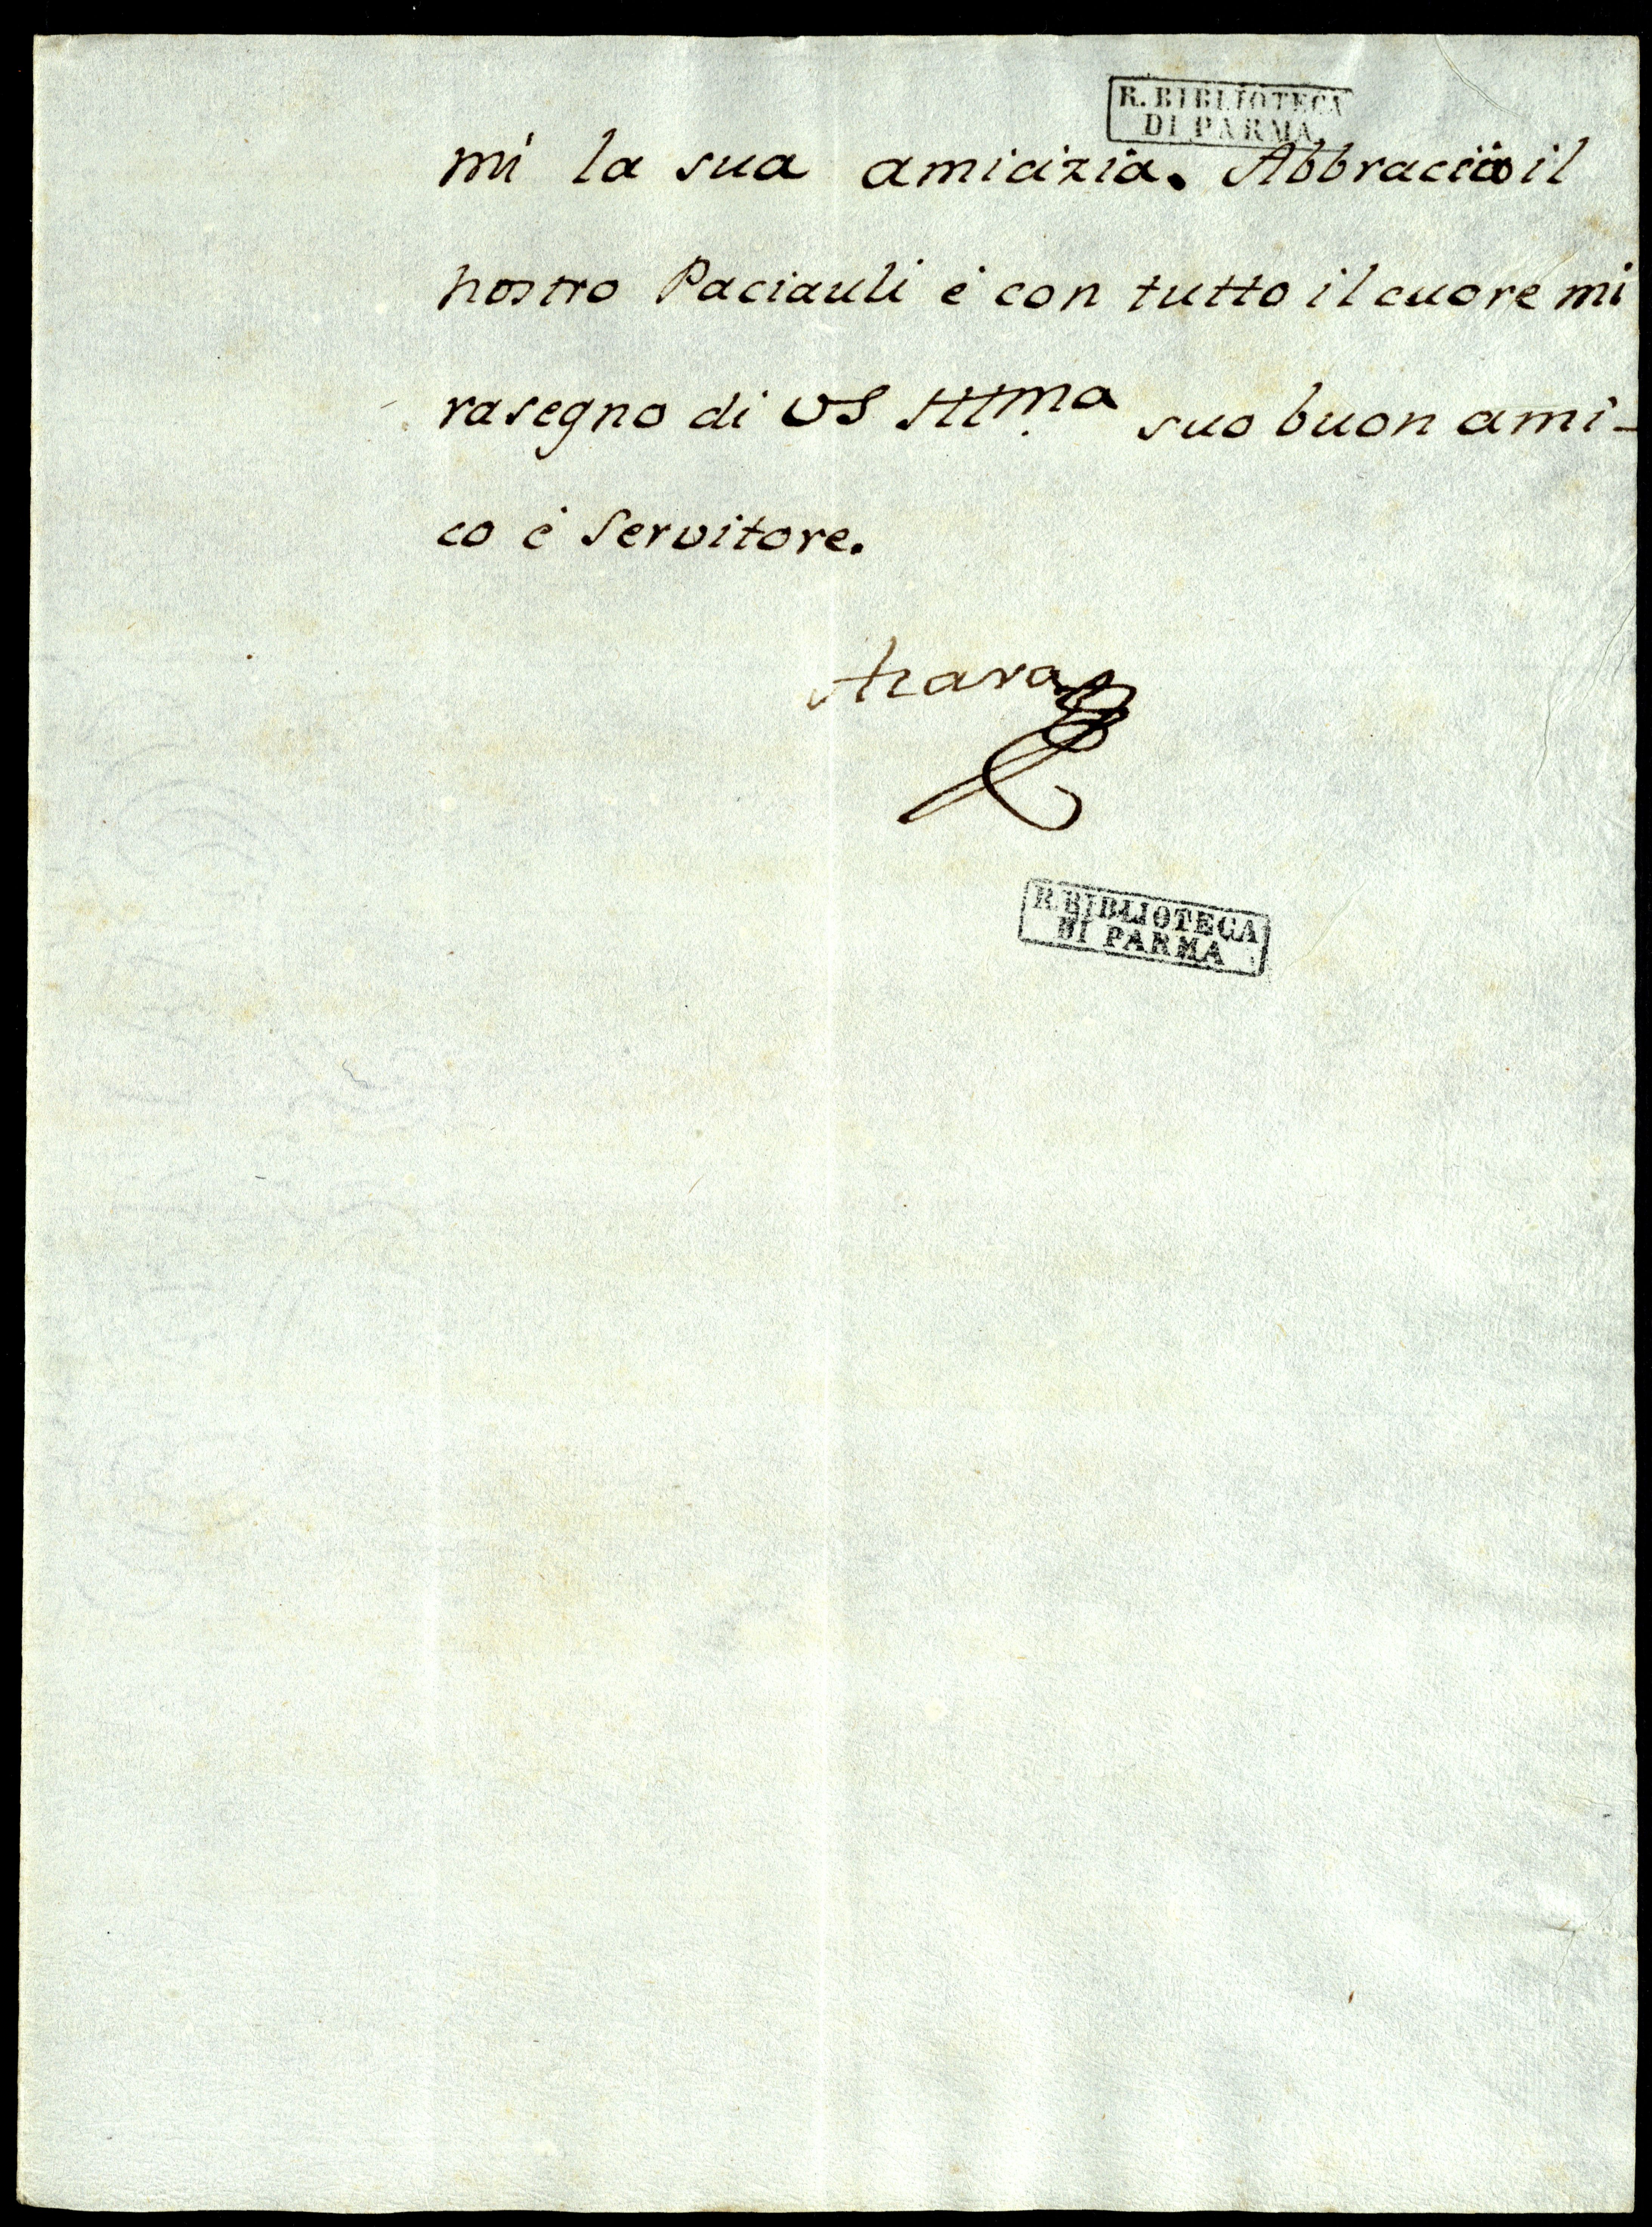 R. BIBLIOTECA
DI PARMA.
mi la sua amicizia. Abbraccio il
nostro Paciauli è con tutto il cuore mi
rasegno di VS Illma suo buon ami-
co è Servitore.
Azara
R. BIBLIOTECA
DI PARMA